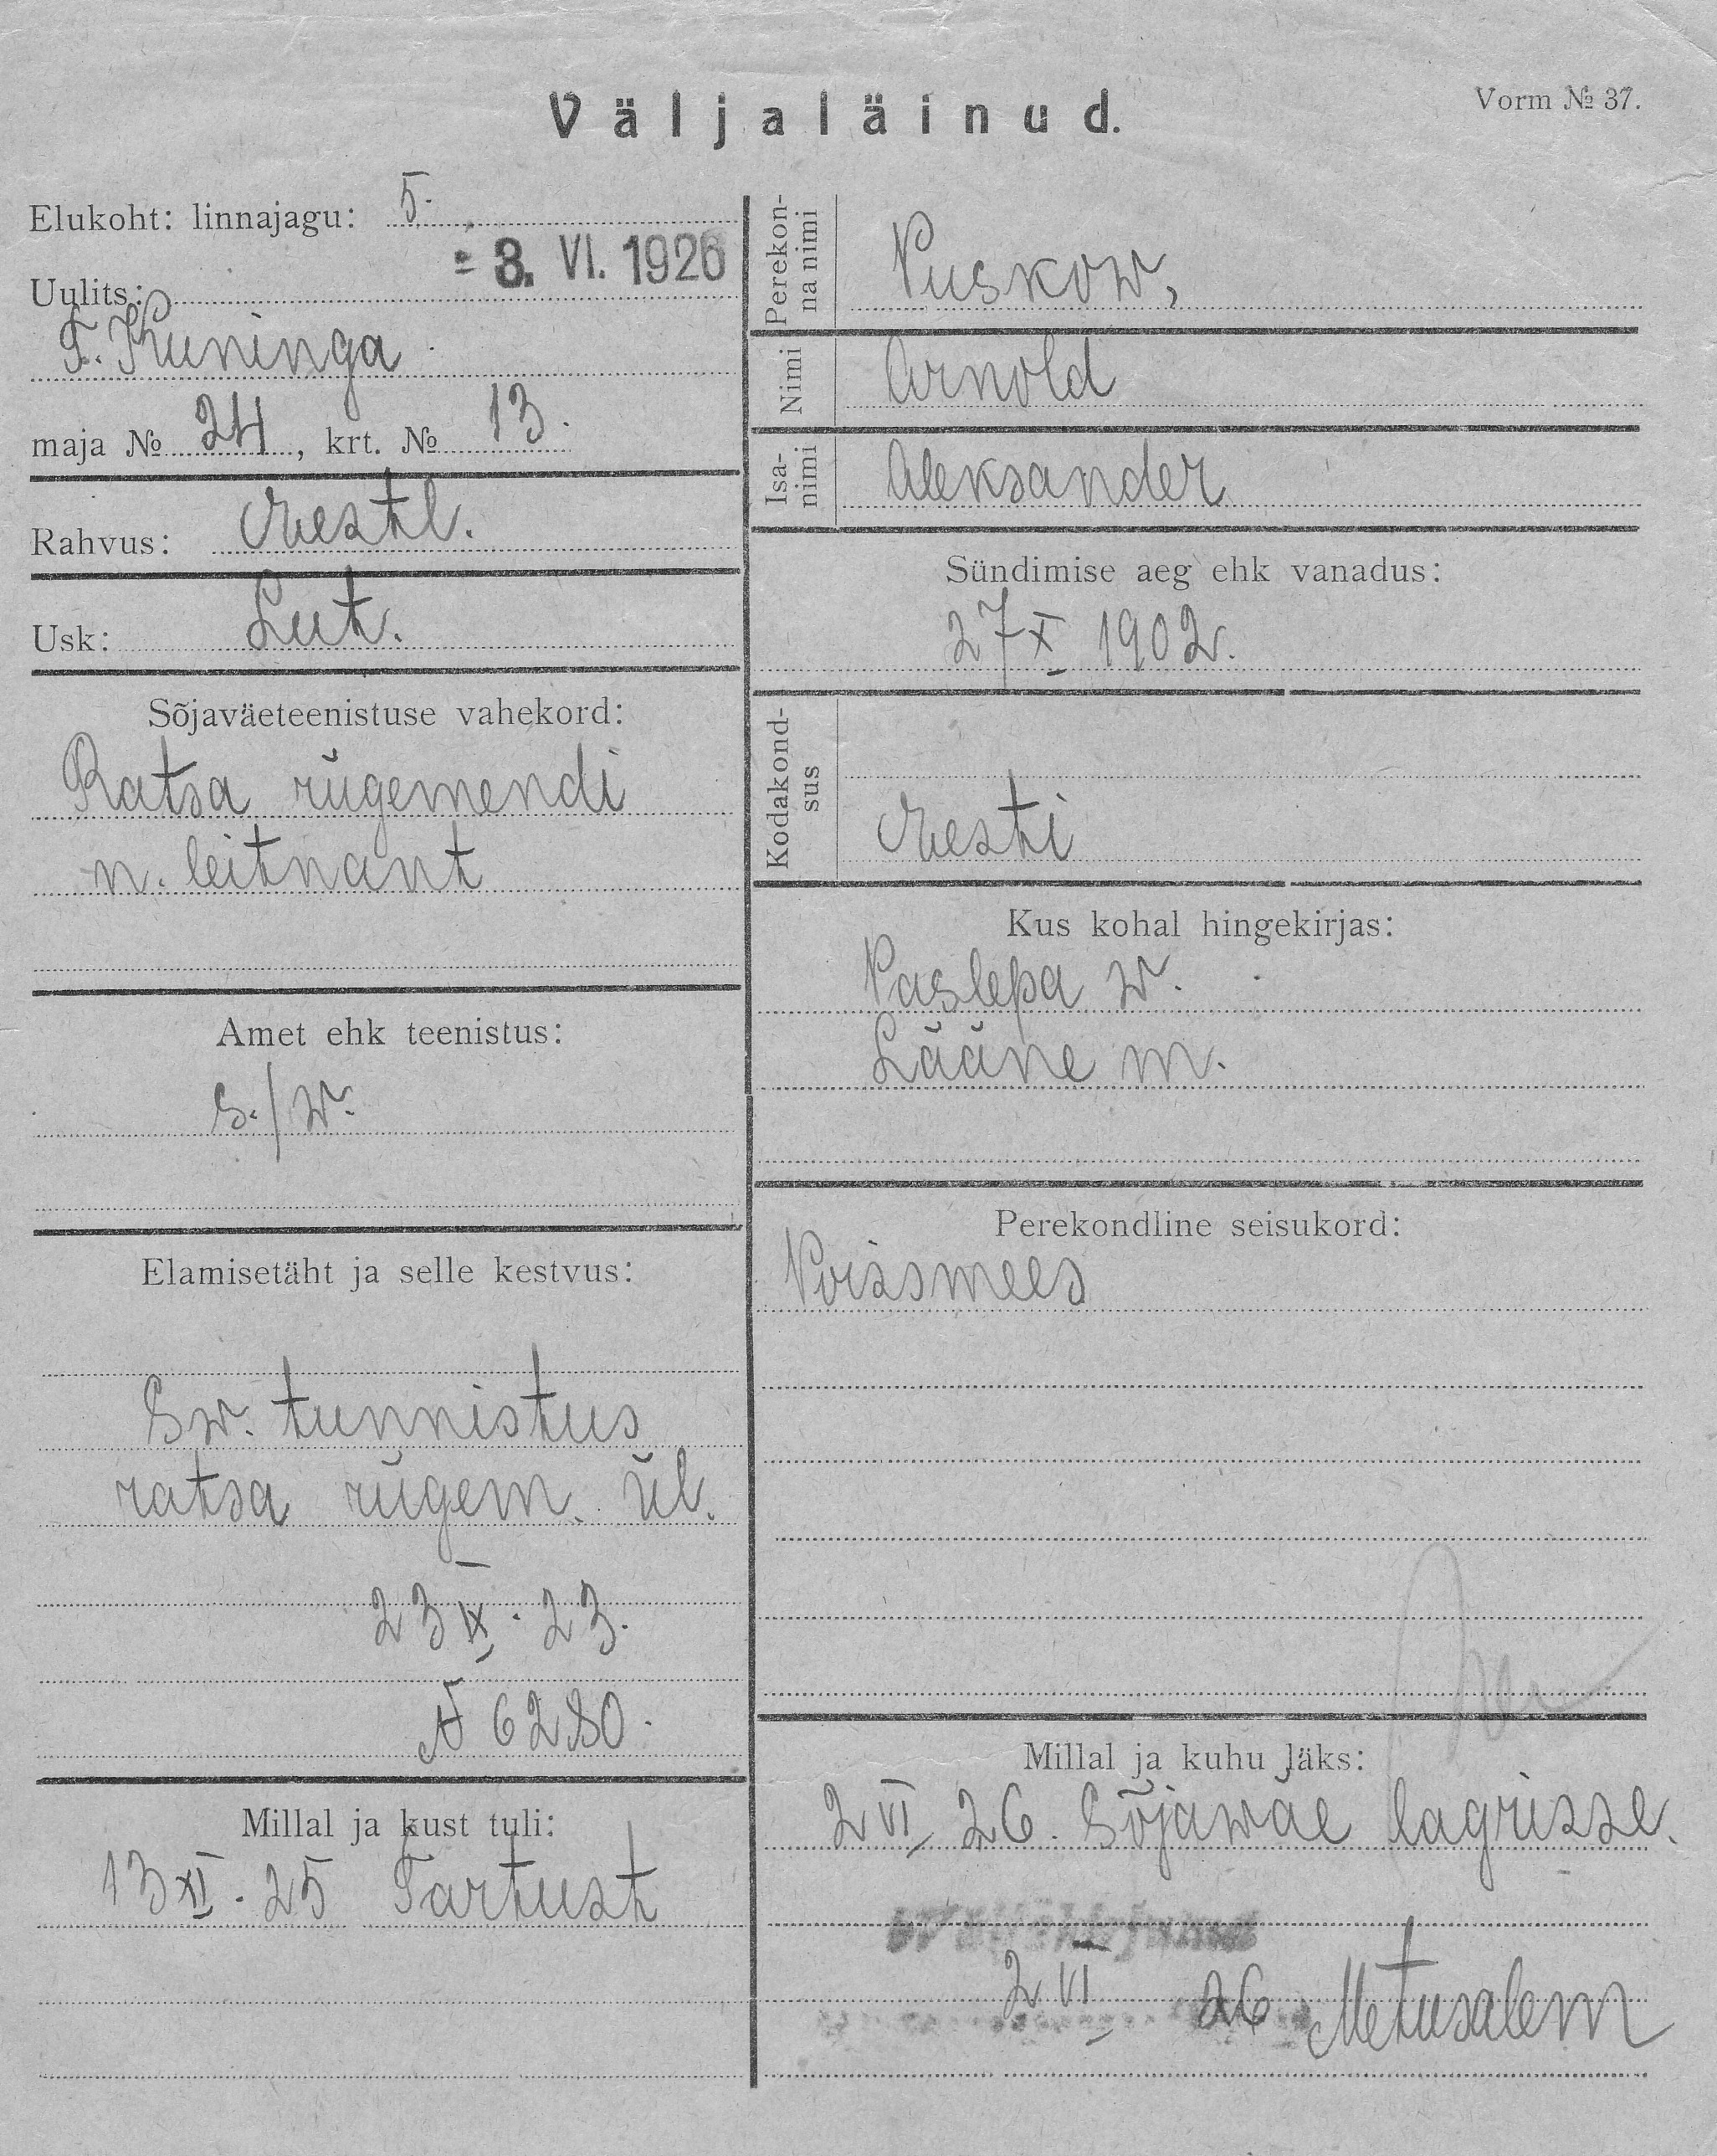 Väljaläinud.
Vorm № 37.
Elukoht: linnajagu: 5.
- 3. VI. 1926
Uulits:
T. Kuninga
maja № 24, krt. № 13.
Rahvus: Eestl.
Usk: Lut.
Sõjaväeteenistuse vahekord:
Ratsa rügemendi
n. leitnant
Amet ehk teenistus:
S./w.
Elamisetäht ja selle kestvus:
Sw. tunnistus
ratsa rügem. ül.
23 IX. 23.
№ 6280.
Millal ja kust tuli:
13 XI. 25 Tartust
Perekon-
na nimi
Puskow,
Nimi
Arnold
Isa-
nimi
Aleksander
Sündimise aeg ehk vanadus:
27 X 1902.
Kodakond-
sus
Eesti
Kus kohal hingekirjas:
Paslepa w.
Lääne m.
Perekondline seisukord:
Poissmees
Millal ja kuhu läks:
2 VI 26. Sõjawäe lagrisse.
2 VI 26 Metusalem